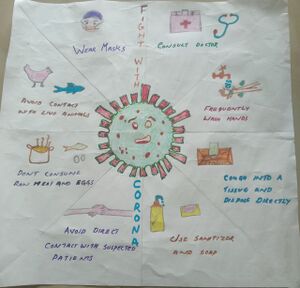 FIGHT WITH
CORONA
WEAR MASKS
CONSULT DOCTOR
AVOID CONTACT
WITH LIVE ANIMALS
FREQUENTLY
WASH HANDS
DON'T CONSUME
RAW MEAT AND EGGS
COUGH INTO A
TISSUE AND
DISPOSE DIRECTLY
AVOID DIRECT
CONTACT WITH SUSPECTED
PATIENTS
USE SANITIZER
AND SOAP